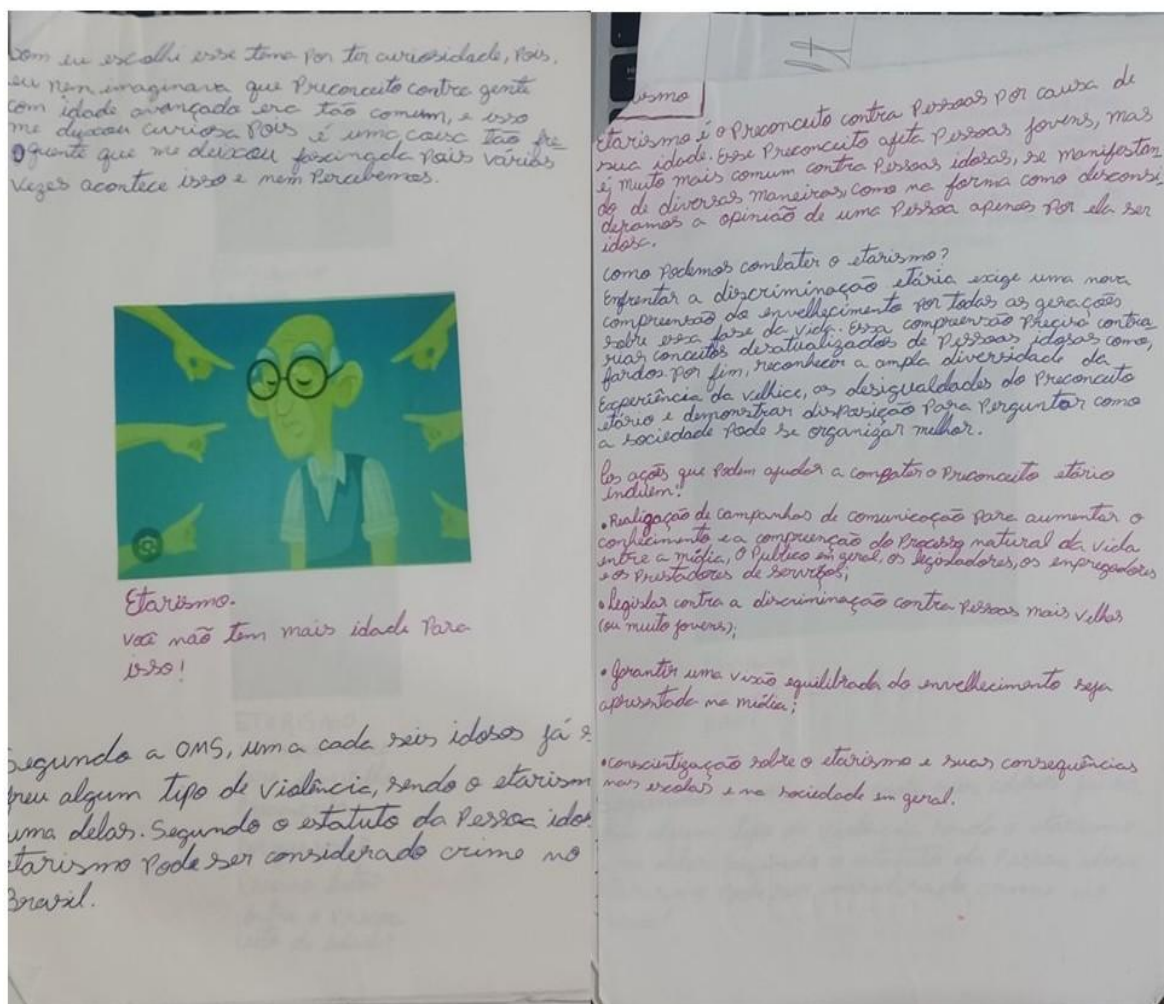 Bom eu escolhi esse tema por ter curiosidade, Pois,
eu nem imaginava que Preconceito contra gente
com idade avançada era tão comum, e isso
me deixou curiosa Pois é uma causa tão fre
quente que me deixou fascinada Pois várias
vezes acontece isso e nem Percebemos.
Etarismo.
você não tem mais idade Para
isso!
Segundo a OMS, um a cada seis idosos já s
freu algum tipo de violência, sendo o etarism
uma delas. Segundo o estatuto da Pessoa idos
etarismo Pode ser considerado crime no
Brasil.
ismo
Etarismo é o Preconceito contra Pessoas Por causa de
sua idade. Esse Preconceito afeta Pessoas jovens, mas
é muito mais comum contra Pessoas idosas, se manifestan
do de diversas maneiras, como na forma como desconsi
deramos a opinião de uma Pessoa apenas Por ela ser
idosa.
como Podemos combater o etarismo?
Enfrentar a discriminação etária exige uma nova
compreensão do envelhecimento por todas as gerações
sobre essa fase da vida. Essa compreensão Precisa contra
riar conceitos desatualizados de Pessoas idosas como,
fardos. por fim, reconhecer a ampla diversidade da
Experiência da velhice, as desigualdades do Preconceito
etário e demonstrar disposição Para Perguntar como
a sociedade Pode se organizar melhor.
as ações que Podem ajudar a combater o Preconceito etário
incluem:
• Realização de campanhas de comunicação Para aumentar o
conhecimento e a compreenção do Processo natural da vida
entre a mídia, o Publico em geral, os legisladores, os empregadores
e os Prestadores de serviços;
• Legislar contra a discriminação contra Pessoas mais velhas
(ou muito jovens);
• garantir uma visão equilibrada do envelhecimento seja
apresentada na mídia;
• conscientização sobre o etarismo e suas consequências
nas escolas e na sociedade em geral.